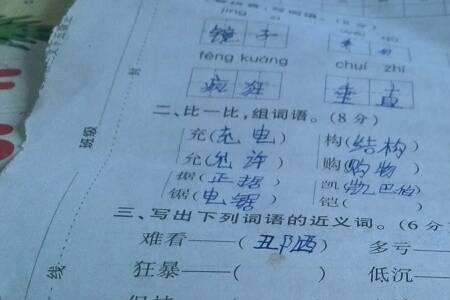 镜子
fēng kuáng chuí zhí
疯狂 垂直
二、比一比,组词语。(8分)
充(充电) 构(结构)
允(允许) 购(购物)
据(证据) 凯(凯巴伯)
锯(电锯) 铠( )
三、写出下列词语的近义词。(6分
难看——(丑陋) 多亏——
狂暴——( ) 低沉——
班级
封
线